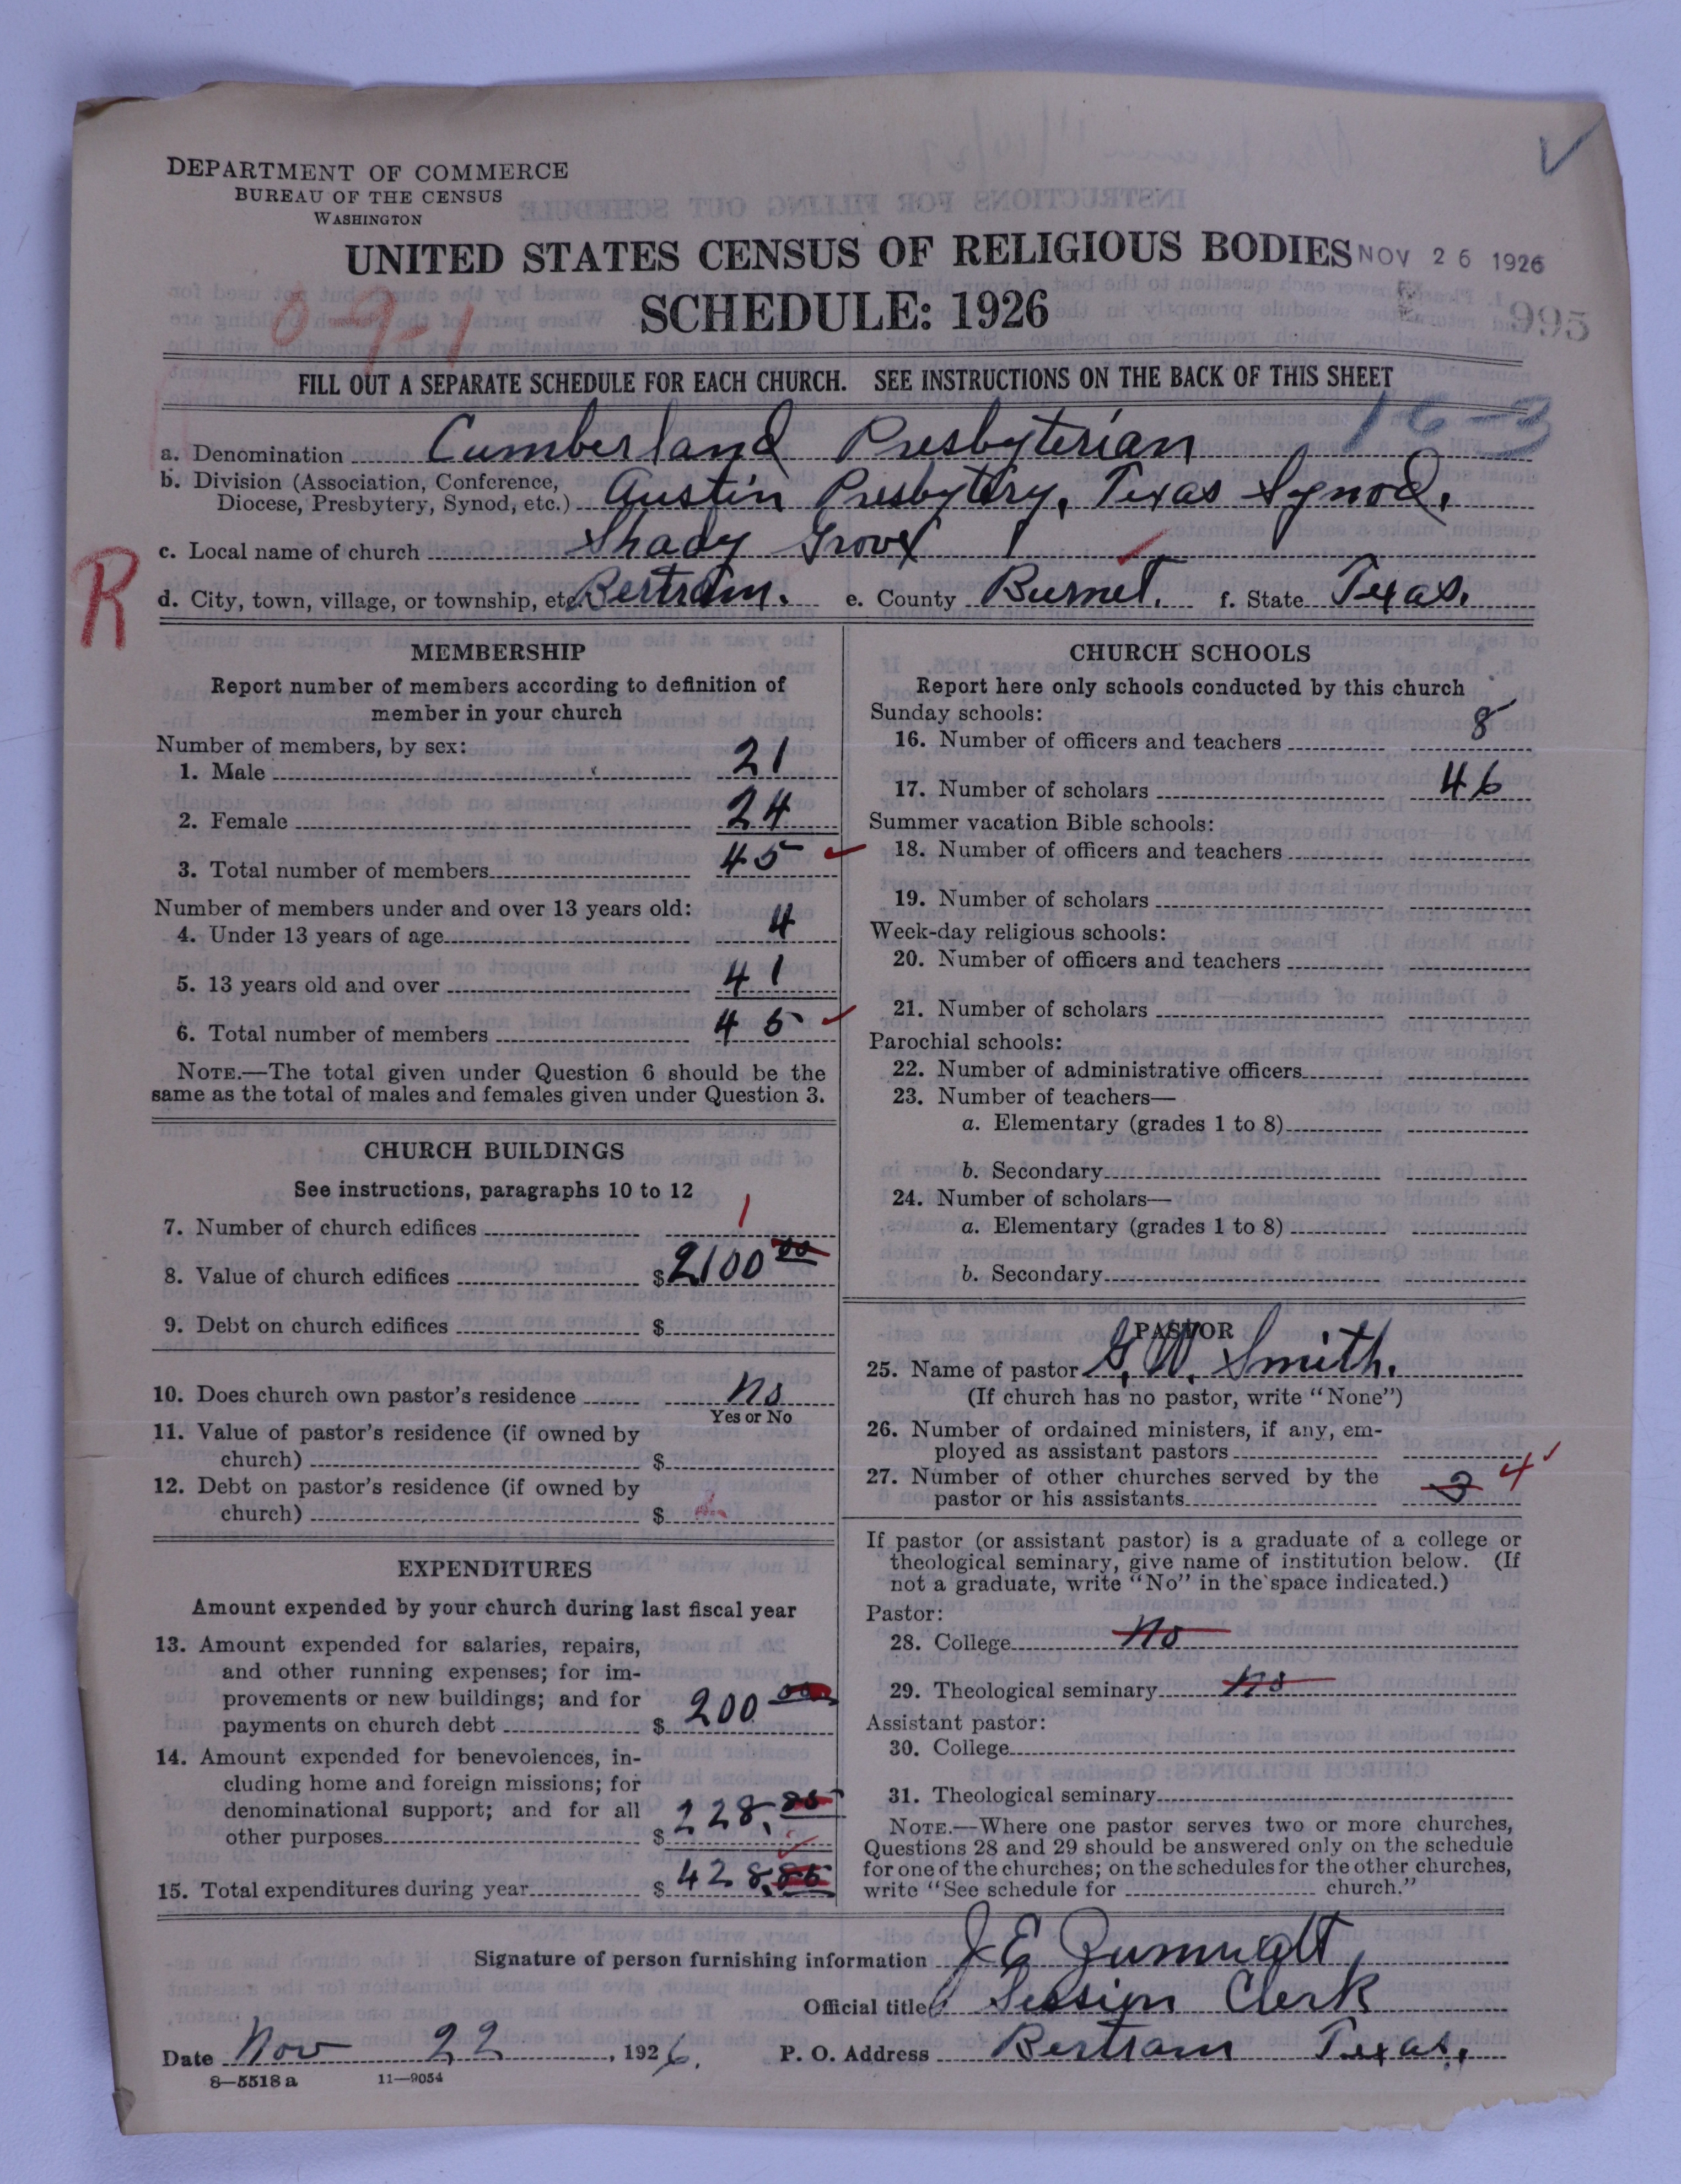 DEPARTMENT OF COMMERCE
BUREAU OF THE CENSUS
WASHINGTON
UNITED STATES CENSUS OF RELIGIOUS BODIES NOV 26 1926
0-9-1
SCHEDULE: 1926
995
FILL OUT A SEPARATE SCHEDULE FOR EACH CHURCH. SEE INSTRUCTIONS ON THE BACK OF THIS SHEET
16-3
a. Denomination Cumberland Presbyterian
b. Division (Association, Conference,
Diocese, Presbytery, Synod, etc.) Austin Presbytery, Texas Synod.
c. Local name of church Shady Grove
R
d. City, town, village, or township, etc. Bertram. e. County Burnet. f. State Texas.
MEMBERSHIP
Report number of members according to definition of
member in your church
Number of members, by sex:
1. Male 21
2. Female 24
3. Total number of members 45
Number of members under and over 13 years old:
4. Under 13 years of age 4
5. 13 years old and over 41
6. Total number of members 45
NOTE.—The total given under Question 6 should be the
same as the total of males and females given under Question 3.
CHURCH BUILDINGS
See instructions, paragraphs 10 to 12
7. Number of church edifices 1
8. Value of church edifices $ 2100 00
9. Debt on church edifices $
10. Does church own pastor's residence No
Yes or No
11. Value of pastor's residence (if owned by
church) $
12. Debt on pastor's residence (if owned by
church) $
EXPENDITURES
Amount expended by your church during last fiscal year
13. Amount expended for salaries, repairs,
and other running expenses; for im-
provements or new buildings; and for
payments on church debt $ 200 00
14. Amount expended for benevolences, in-
cluding home and foreign missions; for
denominational support; and for all
other purposes $ 228.85
15. Total expenditures during year $ 428.85
CHURCH SCHOOLS
Report here only schools conducted by this church
Sunday schools:
16. Number of officers and teachers 8
17. Number of scholars 46
Summer vacation Bible schools:
18. Number of officers and teachers
19. Number of scholars
Week-day religious schools:
20. Number of officers and teachers
21. Number of scholars
Parochial schools:
22. Number of administrative officers
23. Number of teachers—
a. Elementary (grades 1 to 8)
b. Secondary
24. Number of scholars—
a. Elementary (grades 1 to 8)
b. Secondary
PASTOR
25. Name of pastor G. W. Smith.
(If church has no pastor, write "None")
26. Number of ordained ministers, if any, em-
ployed as assistant pastors
27. Number of other churches served by the
pastor or his assistants 3 4
If pastor (or assistant pastor) is a graduate of a college or
theological seminary, give name of institution below. (If
not a graduate, write "No" in the space indicated.)
Pastor:
28. College No
29. Theological seminary No
Assistant pastor:
30. College
31. Theological seminary
NOTE.—Where one pastor serves two or more churches,
Questions 28 and 29 should be answered only on the schedule
for one of the churches; on the schedules for the other churches,
write "See schedule for church."
Signature of person furnishing information J. E.
Official title Session Clerk
Date Nov 22, 1926. P. O. Address Bertram Texas.
8—5518 a 11—9054